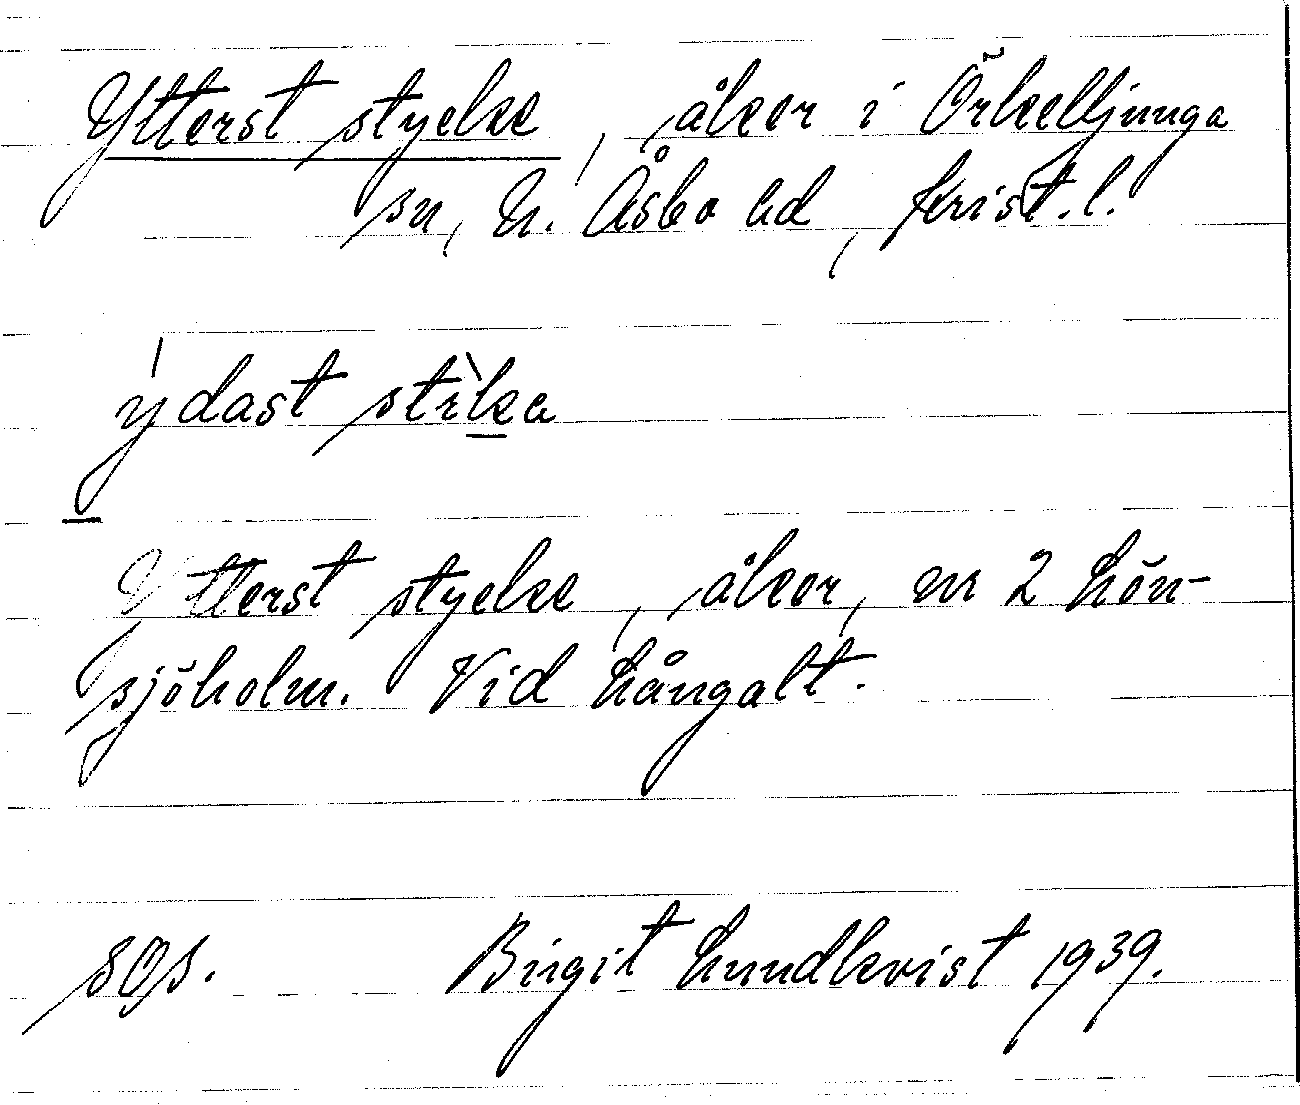 Ytterst stycke, åker i Örkelljunga
sn, N. Åsbo hd, Krist. l.
ýdast stìka
Ytterst stycke, åker, m 2 Lön-
sjöholm. Vid Långalt.
sgs. Birgit Lundkvist 1939.